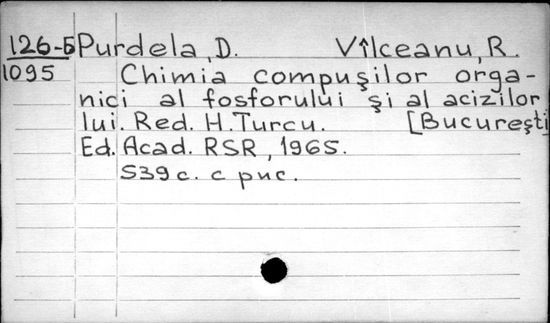 126-Б Purdela, D. Vîlceanu, R.
1095 Chimia compuşilor orga-
nici al fosforului şi al acizilor
lui. Red. H. Turcu. [Bucureşti]
Ed. Acad. RSR, 1965.
539 c. с рис.